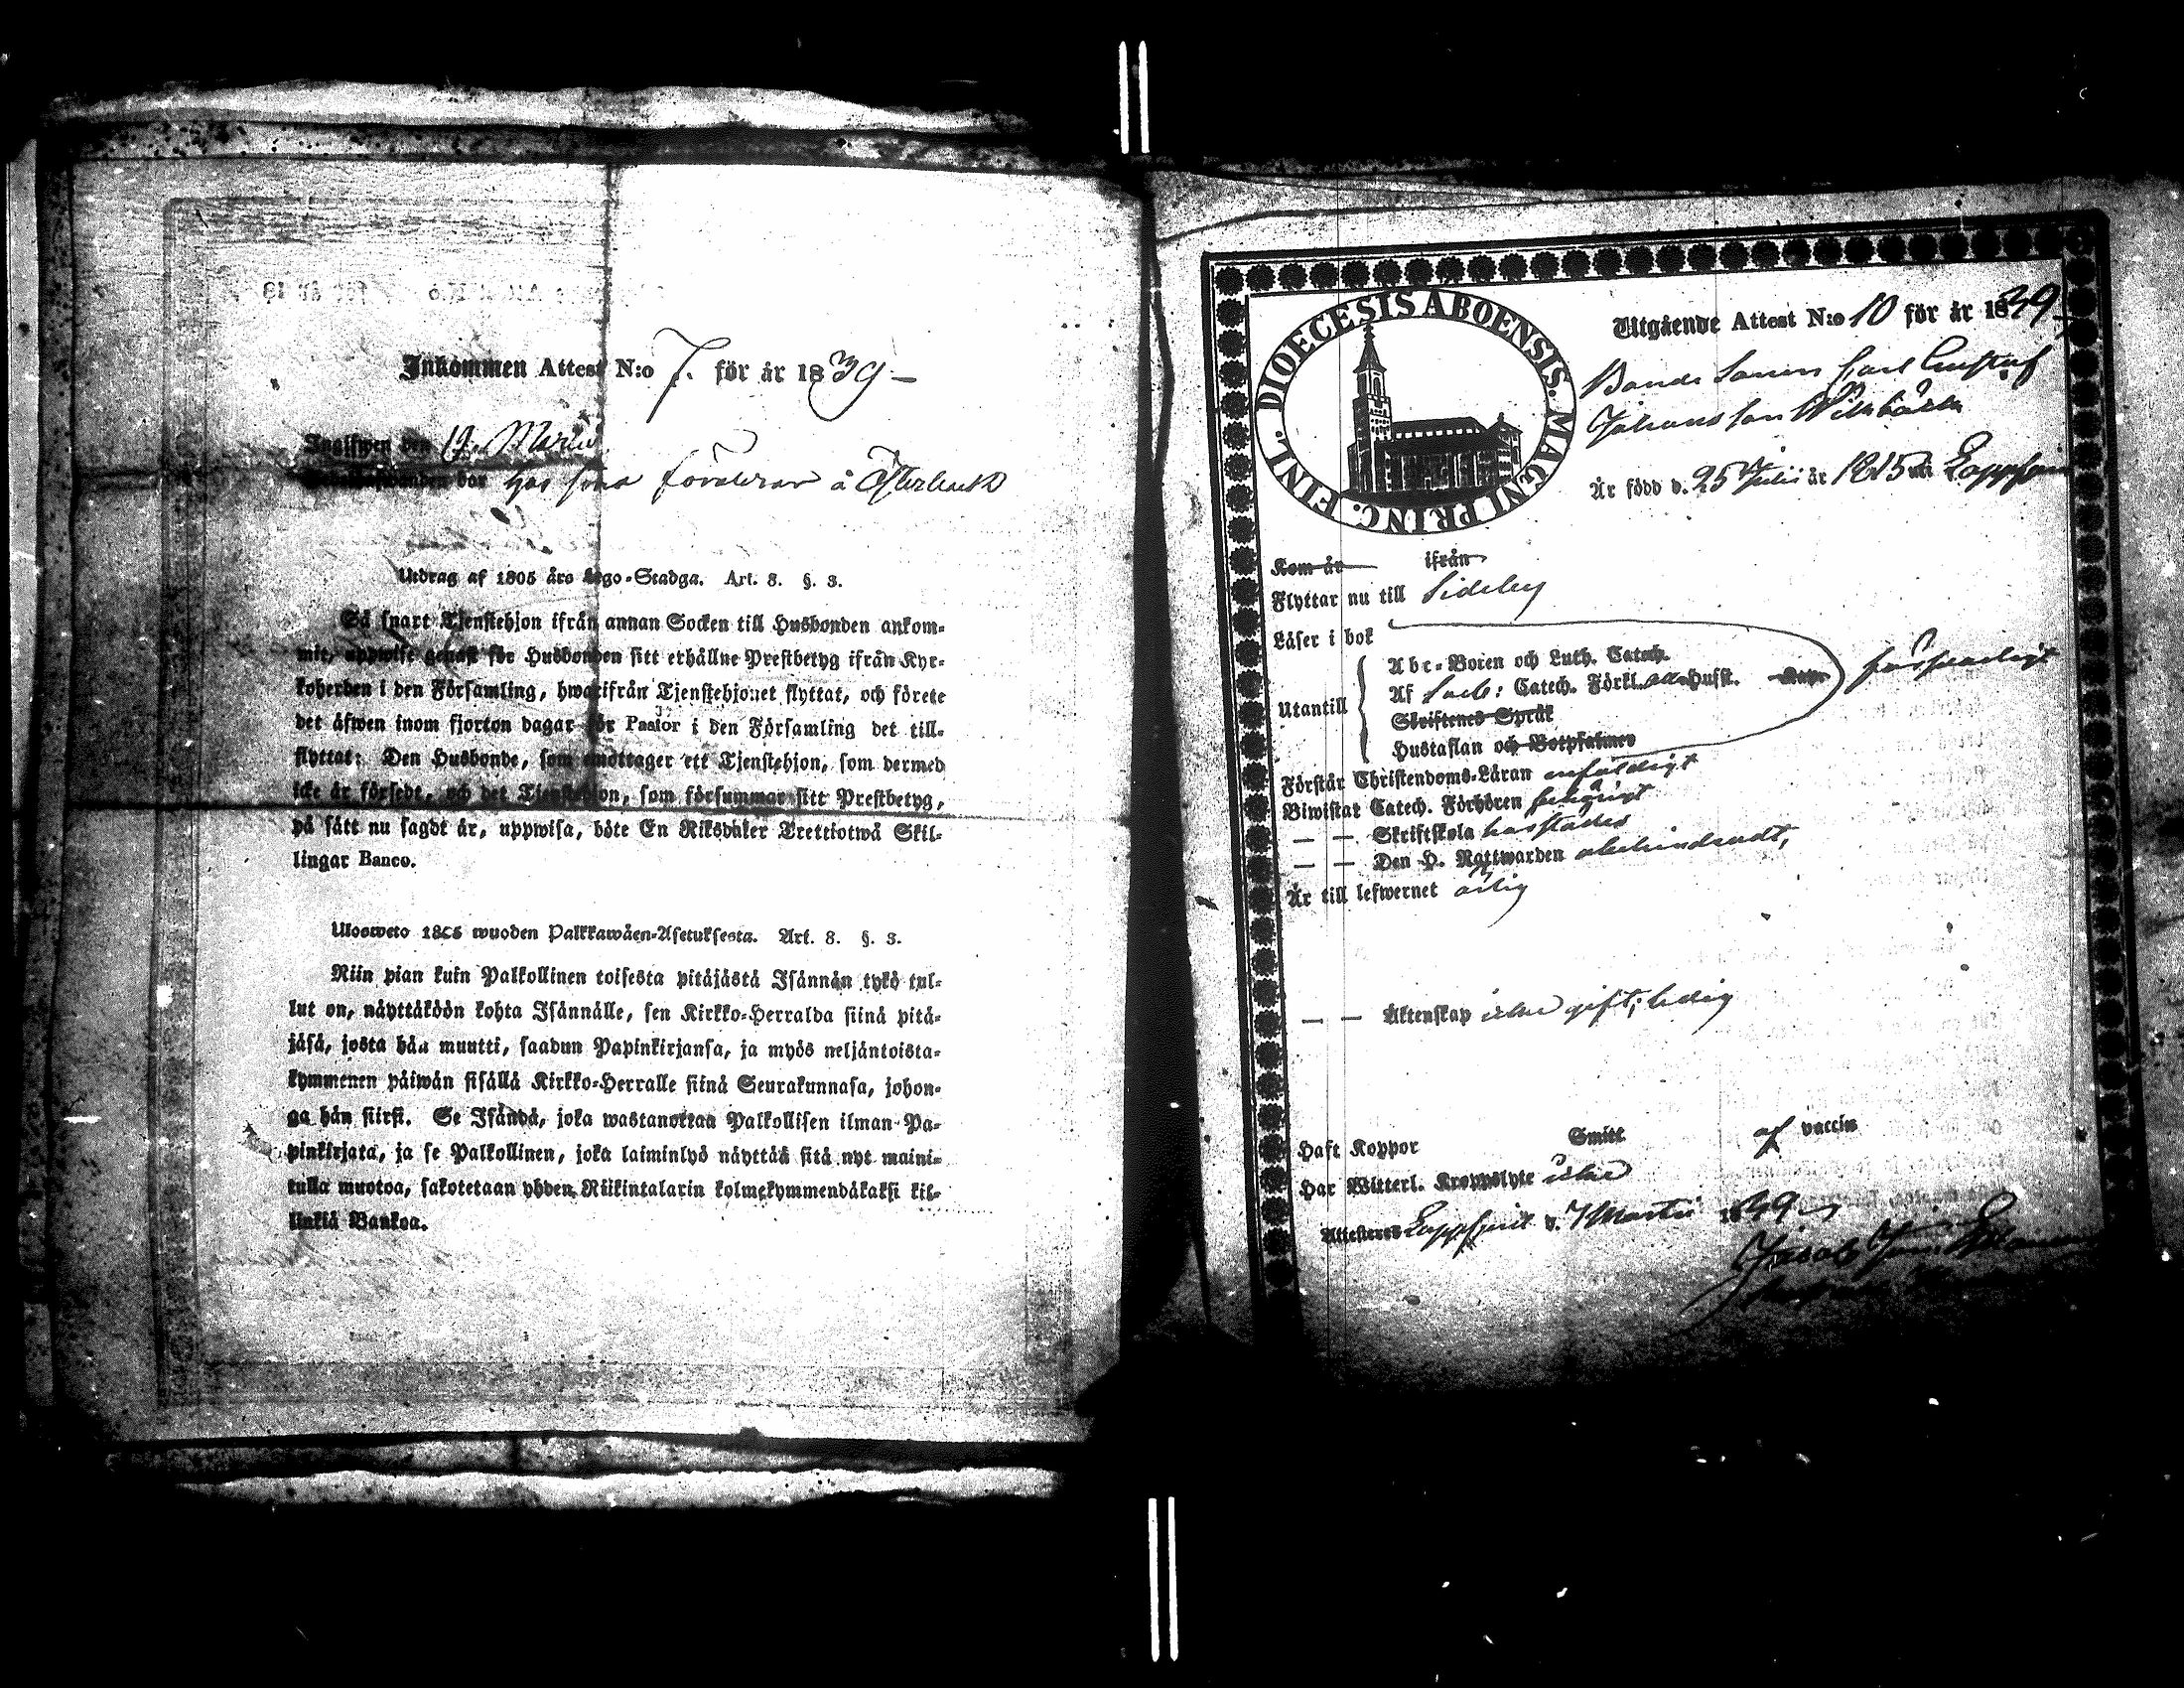 Inkommen Attest N:o 7. för år 1839 —
Inskrifwen den 19 Martii
hos sina föräldrar å Österback
Utdrag af 1805 års Lego-Stadga. Art. 8. §. 3.
Så snart Tjenstehjon ifrån annan Socken till Husbonden ankom-
mit, uppwise genast för Husbonden sitt erhållne Prestbetyg ifrån Kyr-
koherden i den Församling, hwarifrån Tjenstehjonet flyttat, och förete
det äfwen inom fjorton dagar för Pastor i den Församling det till-
flyttat: Den Husbonde, som emottager ett Tjenstehjon, som dermed
icke är försedt, och det Tjenstehjon, som försummar sitt Prestbetyg,
på sätt nu sagdt är, uppwisa, böte En Riksdaler Trettiotwå Skil-
lingar Banco.
Ulosweto 1805 wuoden Palkkawäen-Asetuksesta. Art. 8. §. 3.
Niin pian kuin Palkollinen toisesta pitäjästä Isännän tykö tul-
lut on, näyttäköön kohta Isännälle, sen Kirkko-Herralda siinä pitä-
jäsä, josta hän muutti, saadun Papinkirjansa, ja myös neljäntoista-
kymmenen päiwän sisällä Kirkko-Herralle siinä Seurakunnasa, johon-
ga hän siirsi. Se Isändä, joka wastanottaa Palkollisen ilman Pa-
pinkirjata, ja se Palkollinen, joka laiminlyö näyttää sitä nyt maini-
tulla muotoa, sakotetaan yhden Riikintalarin kolmekymmendäkaksi kil-
linkiä Bankoa.
DIOECESIS ABOENSIS. MAGNI PRINC. FINL.
Utgående Attest N:o 10 för år 1839
Bonde Sonen Carl Gustaf
Johansson
Är född d. 25 Julii år 1815 Lappfjerd
Kom år ifrån
Flyttar nu till Sideby
Läser i bok
Utantill
Abc-Boken och Luth. Catech.
Af Catech. Förkl. Husft.
Skriftenes Språk
Hustaflan och Botpsalmer
försvarligt
Förstår Christendoms-Läran enfaldigt
Biwistat Catech. Förhören
— — Skriftskola
— — Den H. Nattwarden obehindradt,
Är till lefwernet ärlig
— — Äktenskap icke gift; ledig
Haft Koppor Smitt af vaccin
Har Witterl. Kroppslyte icke
Attesteras Lappfjerd d. 7 Martii 1839
Jacob